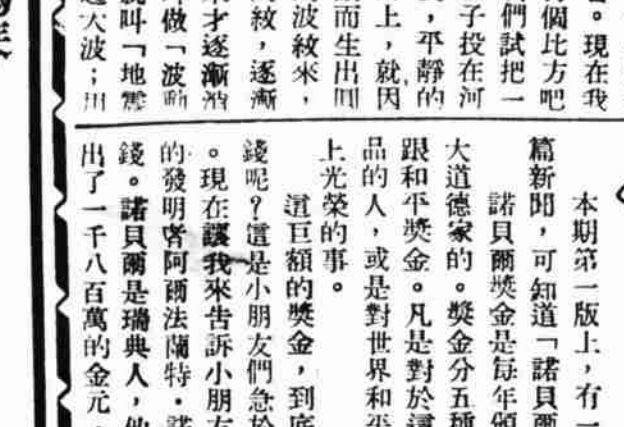 。現在我
個比方吧
們試把一
子投在河
，平靜的
上，就因
而生出圓
波紋來，
紋，逐漸
才逐漸消
做「波動
就叫「地震
大波；
本期第一版上，有一
篇新聞，可知道「諾貝爾
諾貝爾獎金是每年頒
大道德家的。獎金分五種
跟和平獎金。凡是對於這
品的人，或是對世界和平
上光榮的事。
這巨額的獎金，到底
錢呢？這是小朋友們急於
。現在讓我來告訴小朋友
的發明者阿爾法蘭特·諾
錢。諾貝爾是瑞典人，他
出了一千八百萬的金元，